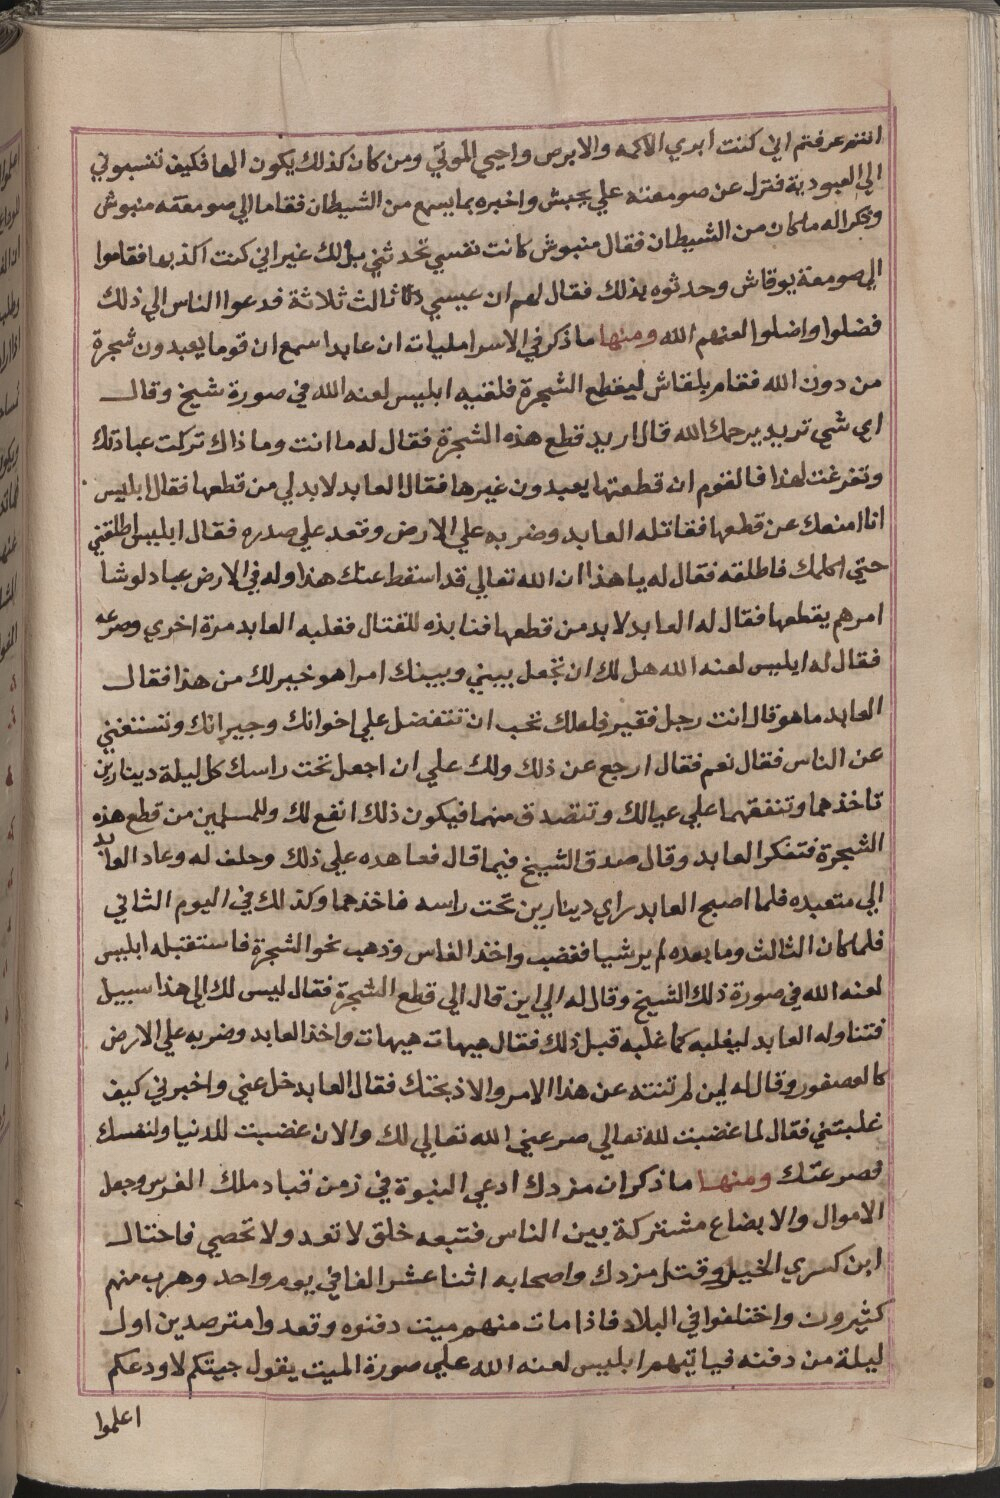 انتم عرفتم اني كنت ابري الاكمه والابرص واحيي الموتي ومن كان كذلك يكون الها فكيف تنسبوني
الي العبودية فنزل عن صومعته علي يحبش واخبره بما يسمع من الشيطان فقاما الي صومعة منبوش
وذكرا له ما كان من الشيطان فقال منبوش كانت نفسي تحدثني بذلك غير اني كنت اكذبها فقاموا
الي صومعة يوقاش وحدثوه بذلك فقال لهم ان عيسي ثالث ثلاثة فدعوا الناس الي ذلك
فضلوا واضلوا لعنهم الله ومنها ما ذكر في الاسرامليات ان عابدا سمع ان قوما يعبدون شجرة
من دون الله فقام بلقاش ليقطع الشجرة فلقيه ابليس لعنه الله في صورة شيخ وقال
اي شي تريد يرحمك الله قال اريد قطع هذه الشجرة فقال له ما انت وما ذاك تركت عبادتك
وتفرغت لهذا فالقوم ان قطعتها يعبدون غيرها فقال العابد لا بد لي من قطعها فقال ابليس
انا امنعك عن قطعها فقاتله العابد وضربه علي الارض وقعد علي صدره فقال ابليس اطلقني
حتي اكلمك فاطلقه فقال له يا هذا ان الله تعالي قد اسقط عنك هذا وله في الارض عباد لو شا
امرهم يقطعها فقال له العابد لا بد من قطعها فنابذه للقتال فغلبه العابد مرة اخري وصرعه
فقال له ابليس لعنه الله هل لك ان تجعل بيني وبينك امرا هو خير لك من هذا فقال
العابد ما هو قال انت رجل فقير فلعلك تحب ان تتفضل علي اخوانك وجيرانك وتستغني
عن الناس فقال نعم فقال ارجع عن ذلك ولك علي ان اجعل تحت راسك كل ليلة دينارين
تاخذهما وتنفقهما علي عيالك وتتصدق منهما فيكون ذلك انفع لك وللمسلمين من قطع هذه
الشجرة فتفكر العابد وقال صدق الشيخ فيما قال فعاهده علي ذلك وحلف له وعاد العابد
الي متعبده فلما اصبح العابد راي دينارين تحت راسه فاخذهما وكذلك في اليوم الثاني
فلما كان الثالث وما بعده لم ير شيا فغضب واخذ الفاس وذهب نحو الشجرة فاستقبله ابليس
لعنه الله في صورة ذلك الشيخ وقال له الي اين قال الي قطع الشجرة فقال ليس لك الي هذا سبيل
فتناوله العابد ليغلبه كما غلبه قبل ذلك فقال هيهات هيهات واخذ العابد وضربه علي الارض
كالعصفور وقال له لين لم تنته عن هذا الامر والا ذبحتك فقال العابد خل عني واخبرني كيف
غلبتني فقال لما غضبت لله تعالي صرعني الله تعالي لك والان غضبت للدنيا ولنفسك
فصرعتك ومنها ما ذكر ان مزدك ادعي النبوة في زمن قباد ملك الفرس وجعل
الاموال والابضاع مشتركة بين الناس فتبعه خلق لا تعد ولا تحصي فاحتال
ابن كسري الخيل وقتل مزدك واصحابه اثنا عشر الفا في يوم واحد وهرب منهم
كثيرون واختلفوا في البلاد فاذا مات منهم ميت دفنوه وقعدوا مترصدين اول
ليلة من دفنه فياتيهم ابليس لعنه الله علي صورة الميت يقول جيتكم لاودعكم
اعلموا